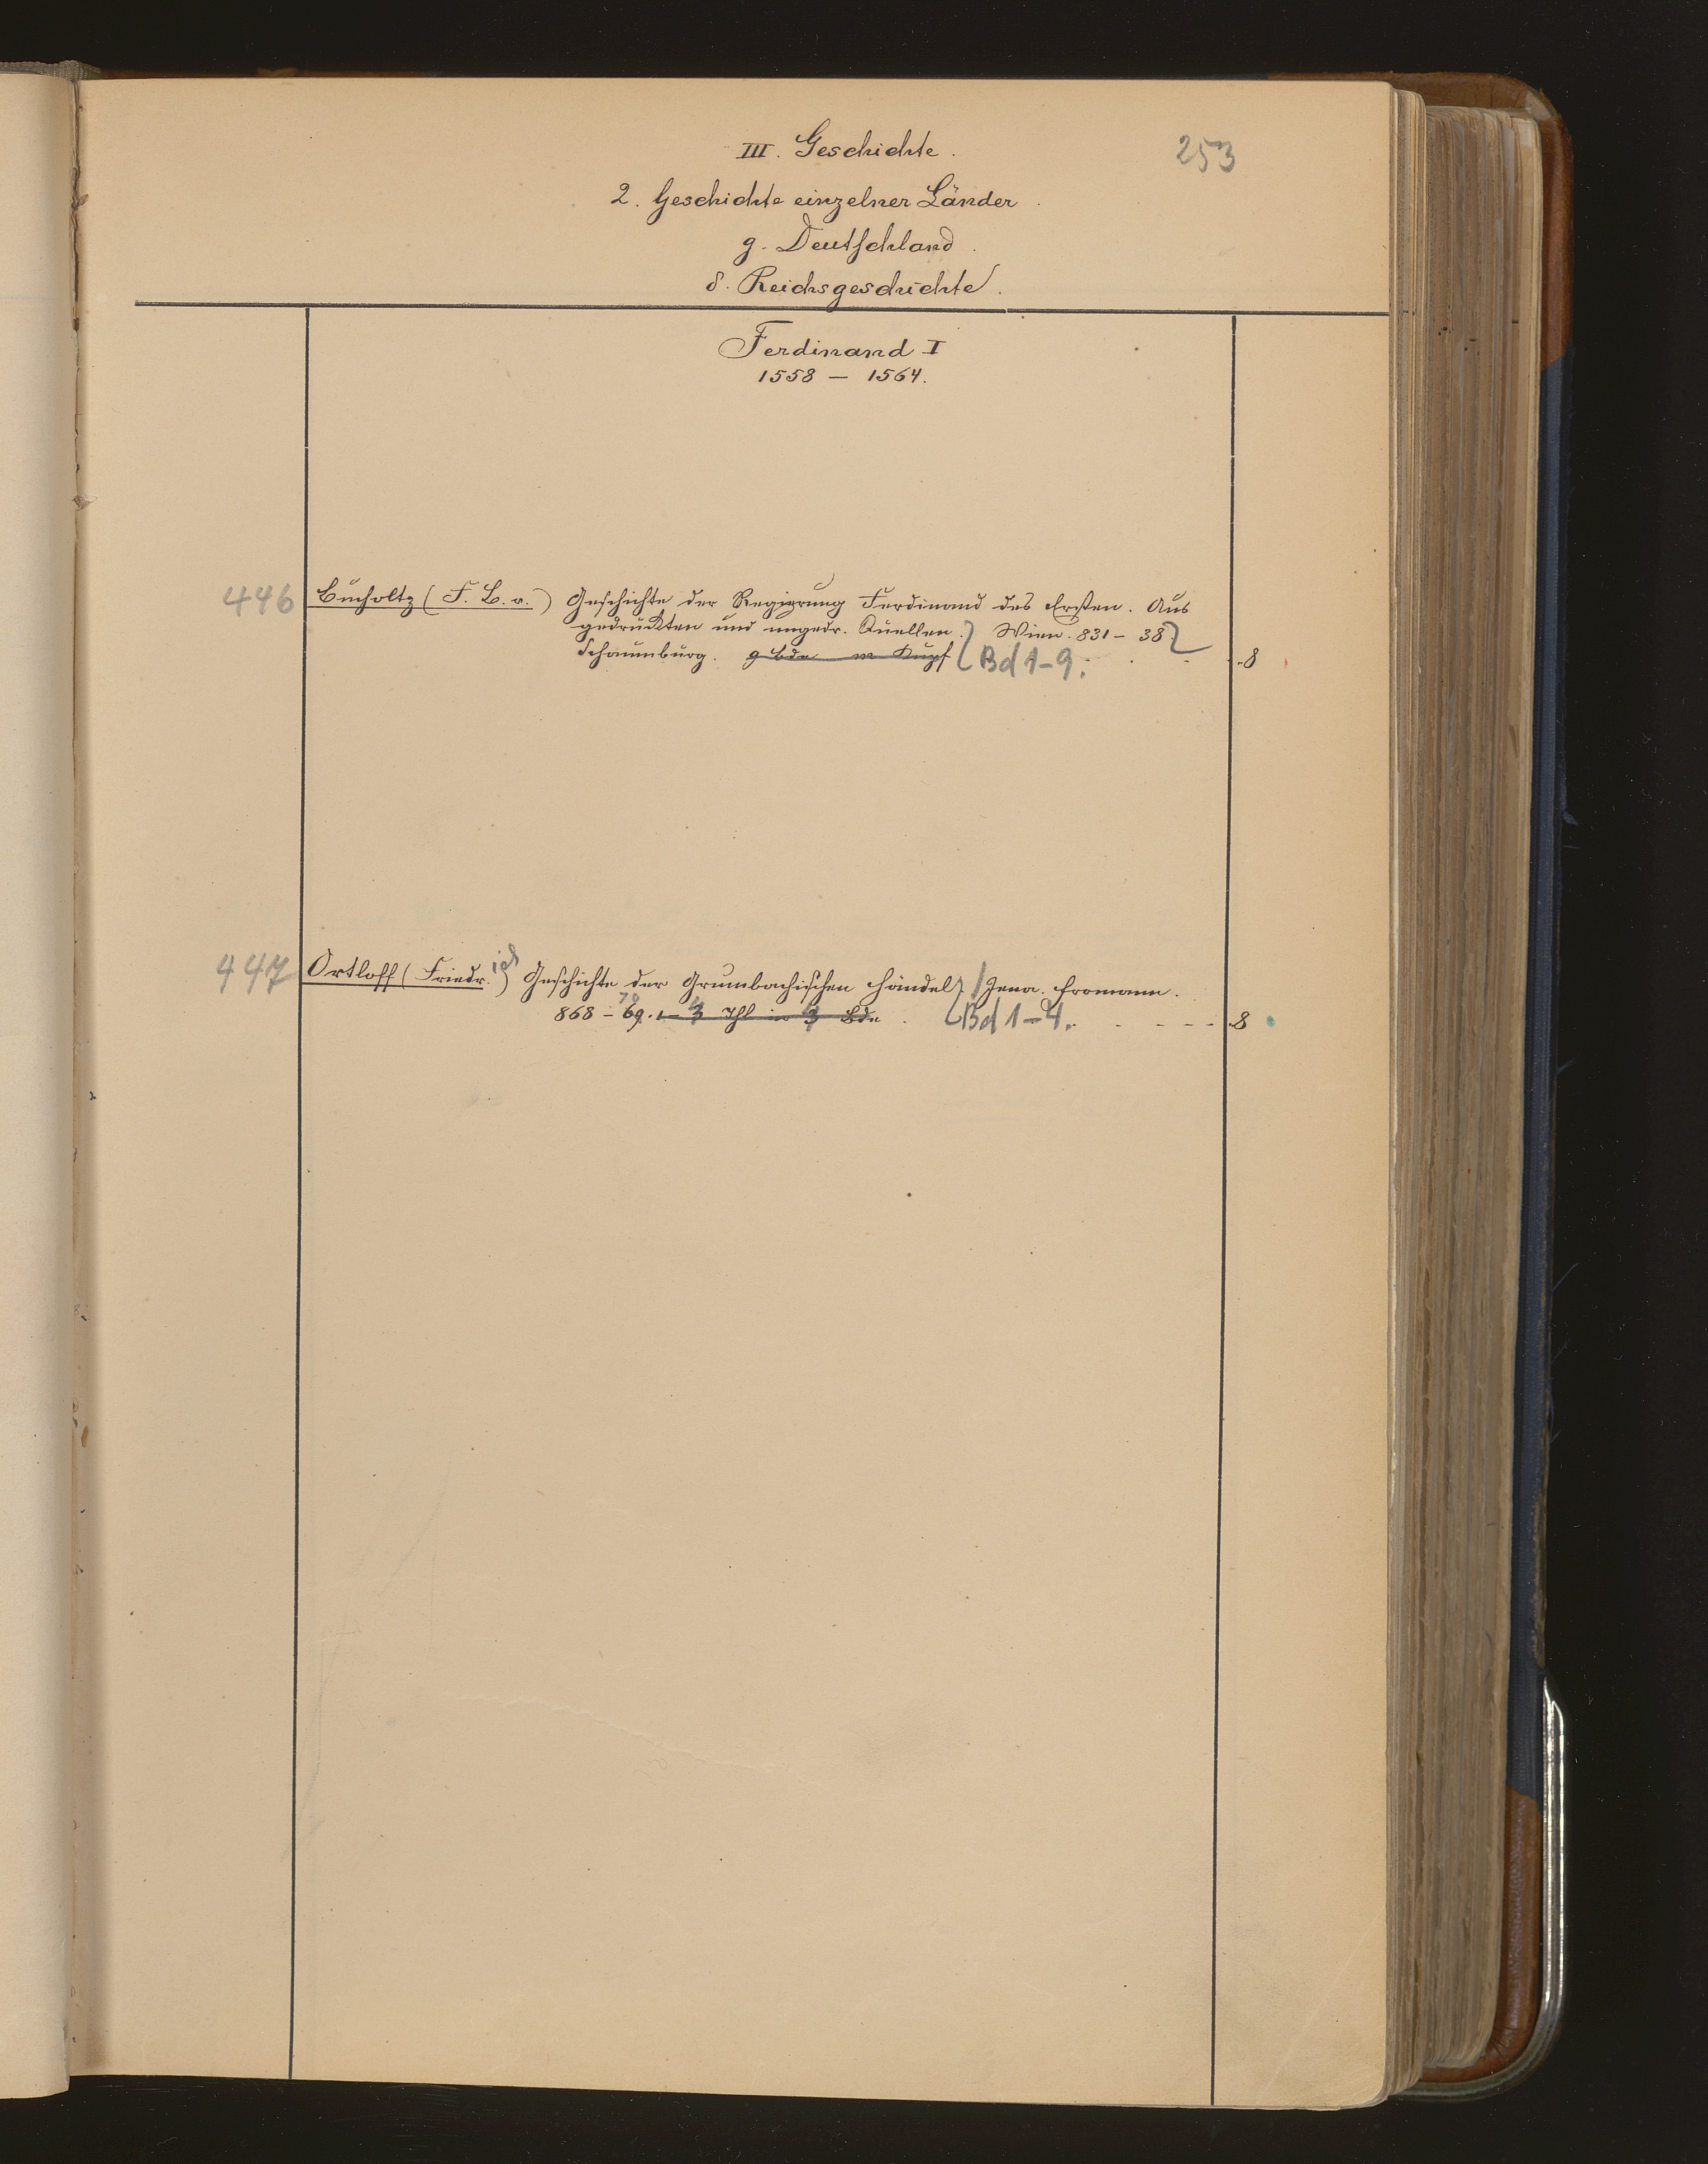 253
III. Geschichte.
2. Geschichte einzelner Länder.
g. Deutschland.
δ. Reichsgeschichte.
Ferdinand I
1558 — 1564.
446 Bucholtz (F. B. v.) Geschichte der Regierung Ferdinand des Ersten. Aus
gedruckten und ungedr. Quellen. Wien. 831 – 38
Schaumburg. 9 Bde m Kupf Bd 1–9. 8
447 Ortloff (Friedr.ich) Geschichte der Grumbachischen Händel. Jena. Fromann.
868 – 69. 70 1–4 Thl in 4 Bde. Bd 1–4. 8